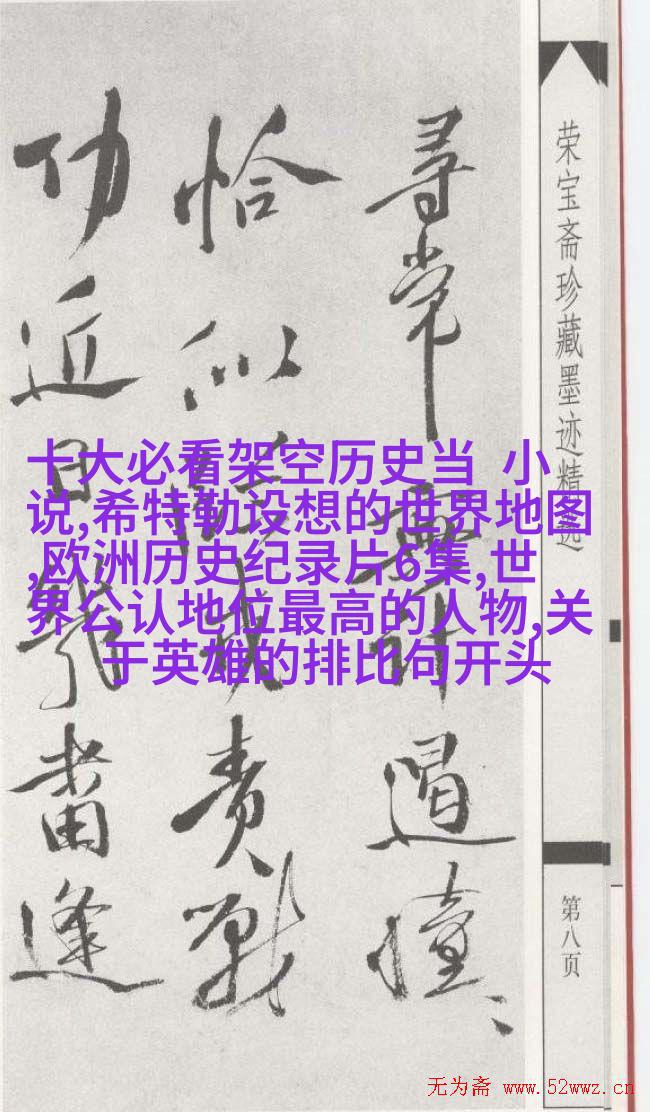 荣宝斋珍藏墨迹精选
尋常無計遏憧、
恰似責戰
功近日畨逢
十大必看架空历史当 小
说,希特勒设想的世界地图
,欧洲历史纪录片6集,世
界公认地位最高的人物,关
于英雄的排比句开头
第八页
无为斋 www.52wwz.cn